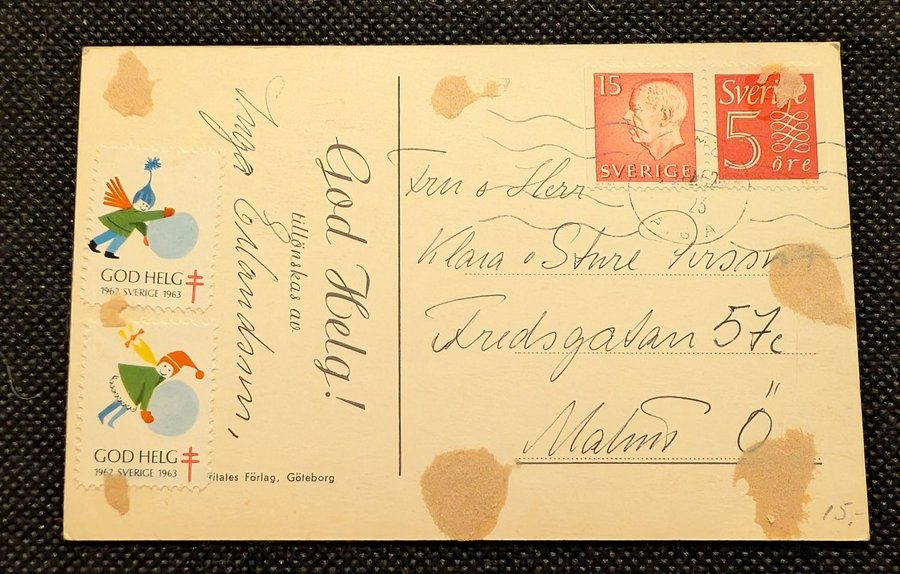 God Helg!
tillönskas av
Inga Erlandson,
GOD HELG
1962 SVERIGE 1963
GOD HELG
1962 SVERIGE 1963
Förlag, Göteborg
15
SVERIGE
Sverige
5 öre
Fru o Herr
Klara o Sture
Fredsgatan 57c
Malmö Ö
15.-